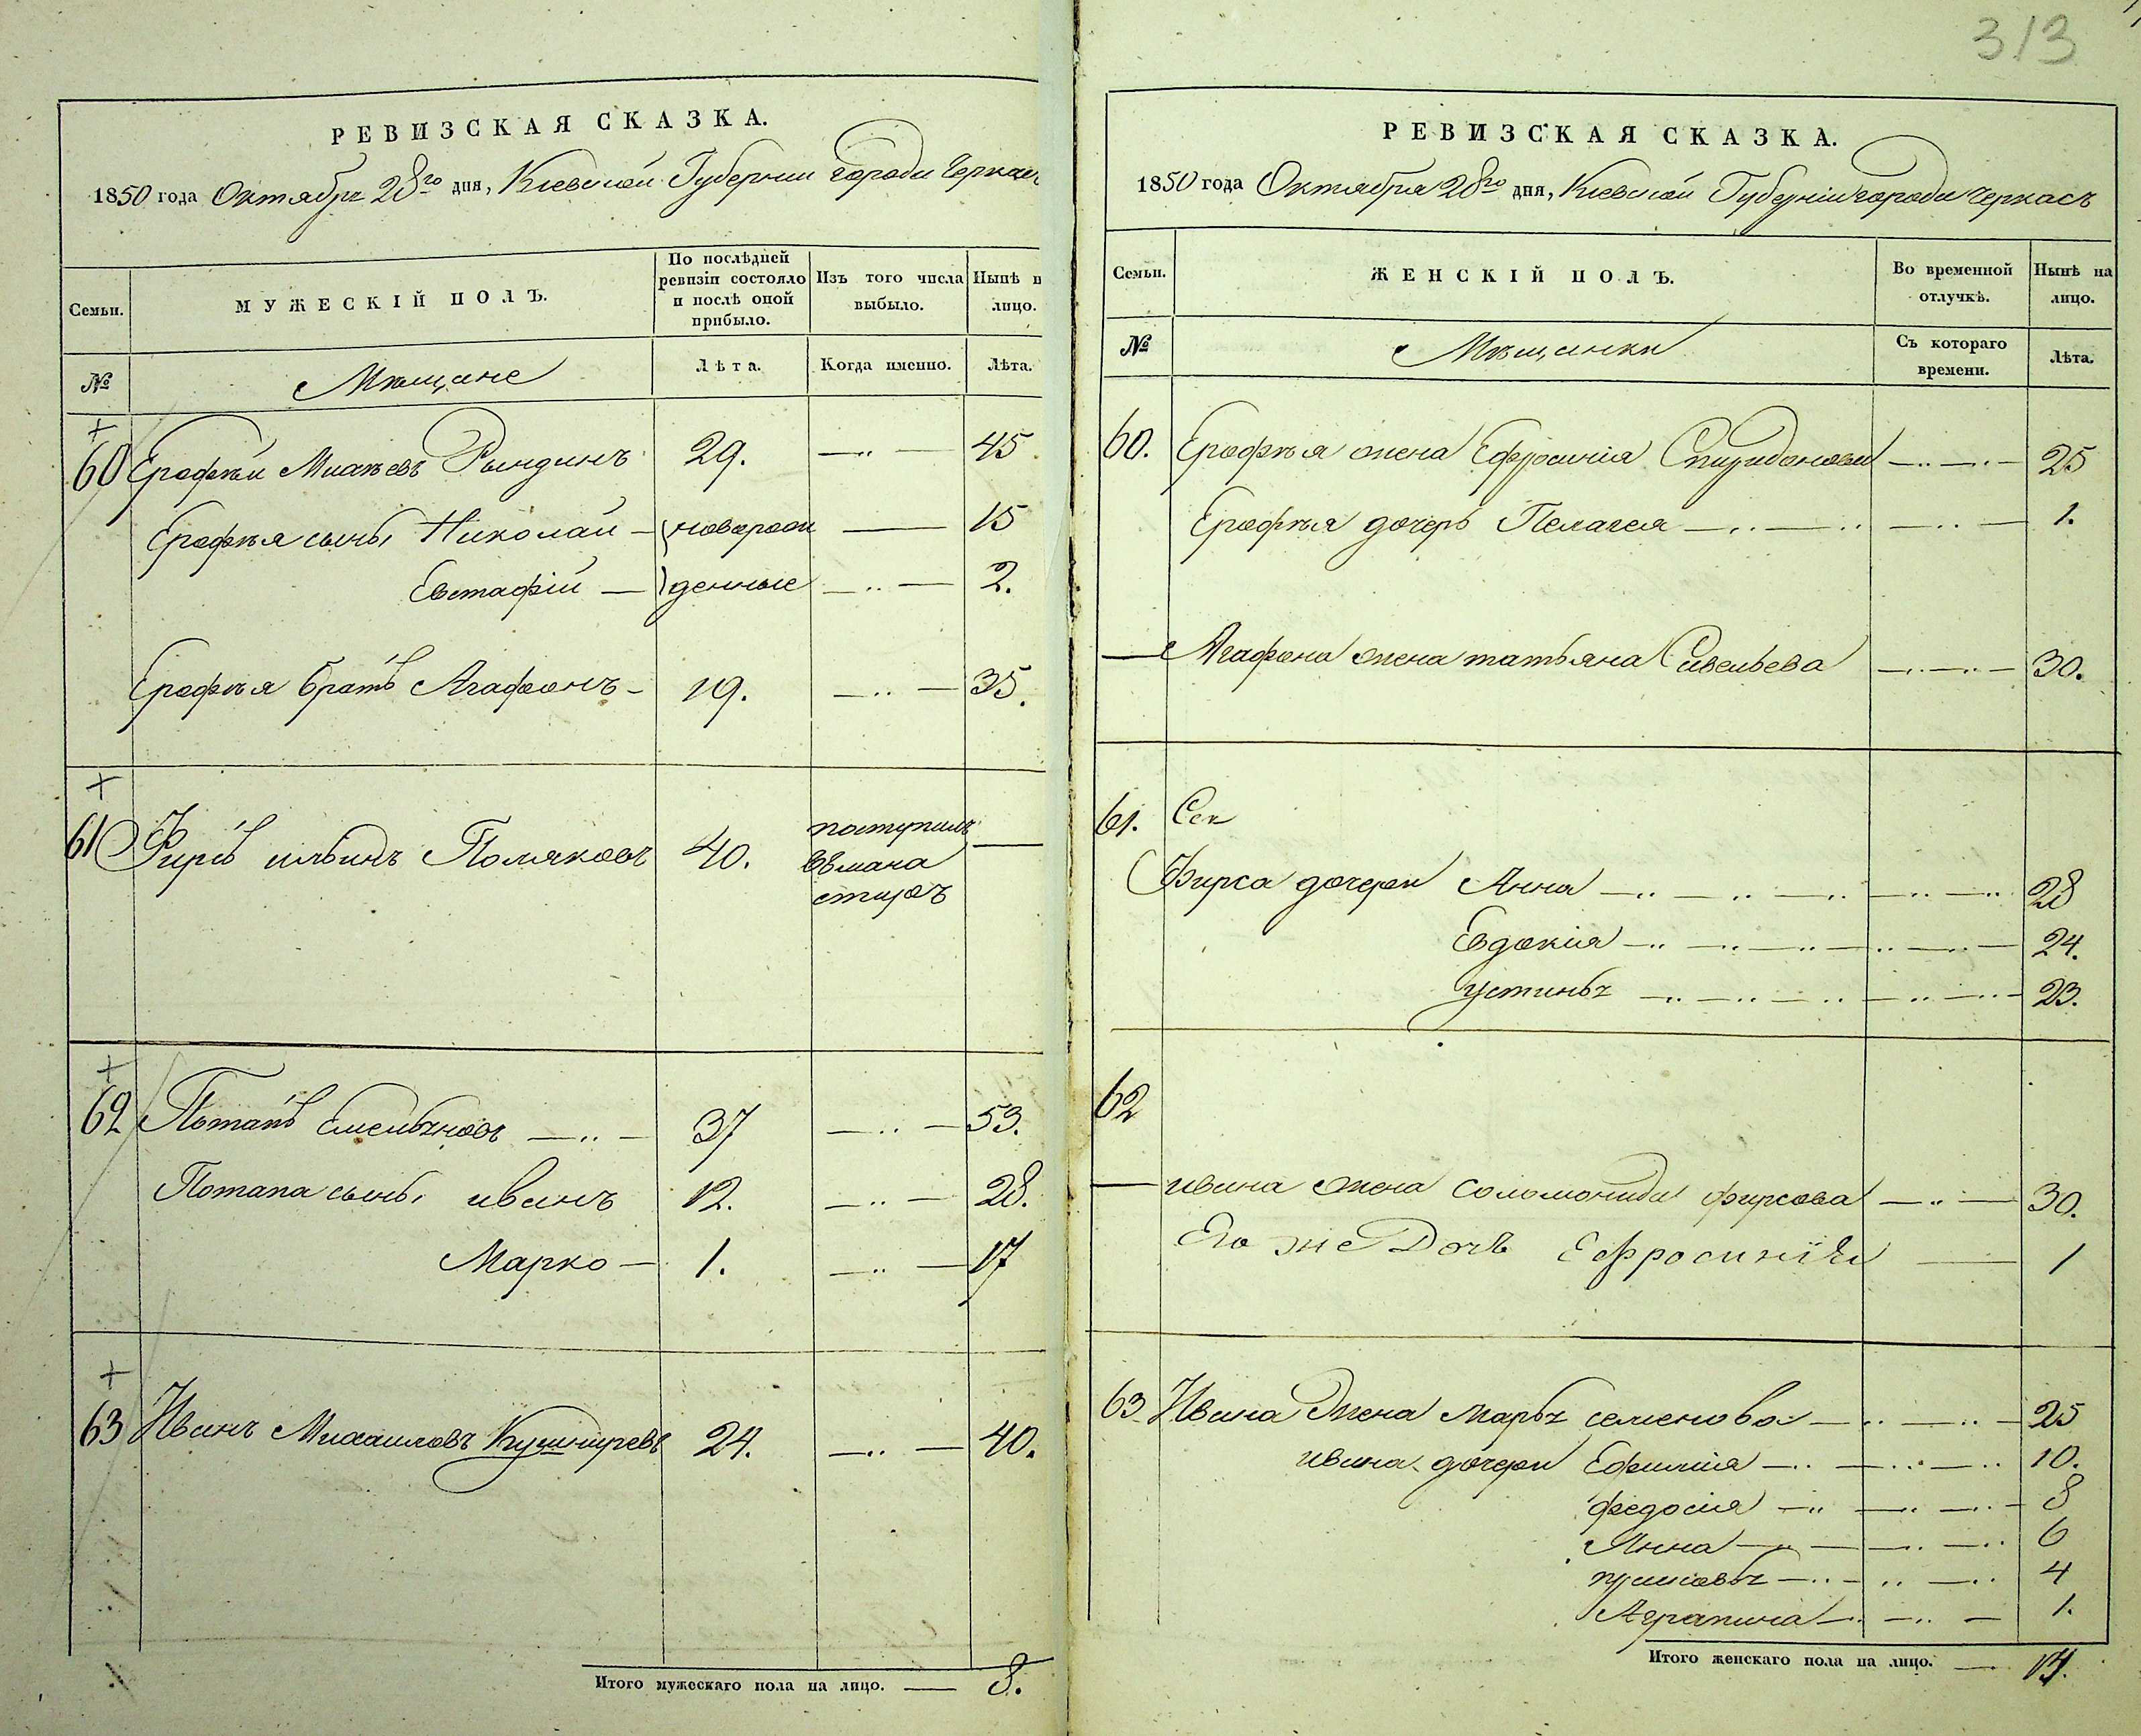 313
РЕВИЗСКАЯ СКАЗКА.
1850 года Октября 28го дня, Кіевской Губерніи города Черкас
Семьи. МУЖЕСКІЙ ПОЛЪ. По послѣдней ревизіи состояло и послѣ оной прибыло. Изъ того числа выбыло. Нынѣ н лицо.
№ Мѣщане Лѣта. Когда именно. Лѣта.
60 Ерофѣй Рындинъ 29. 45
Ерофѣя сынъ Николай новорож 15
Евстафій денные 2.
Ерофѣя братъ Агафонъ 19. 35.
61 Фирсъ ильинъ Поляковъ 40. поступилъ
вмона
стирь
62 Потапъ Емельяновъ 37 53.
Потапа сынъ иванъ 12. 28.
Марко 1. 17
63 Иванъ Михайловъ Кушниревъ 24. 40.
Итого мужескаго пола на лицо. 8.
РЕВИЗСКАЯ СКАЗКА.
1850 года Октября 28го дня, Кіевской Губерніи города Черкасъ
Семьи. ЖЕНСКІЙ ПОЛЪ. Во временной отлучкѣ. Нынѣ на лицо.
№ Мѣщанки Съ котораго времени. Лѣта.
60. Ерофѣя жена Ефросинія Спиридонова 25
Ерофѣя дочерь Пелагея 1.
Агафона жена татьяна Савельева 30.
61.
Фирса дочери Анна 28
Евдокія 24.
Устинья 23.
62
ивана жена соломонида фирсова 30.
Его же Дочь Ефросинія 1
63 Ивана Жена марья семенова 25
ивана дочери Ефимія 10.
федосія 8
Анна 6
4
Агрипина 1.
Итого женскаго пола на лицо. 14.